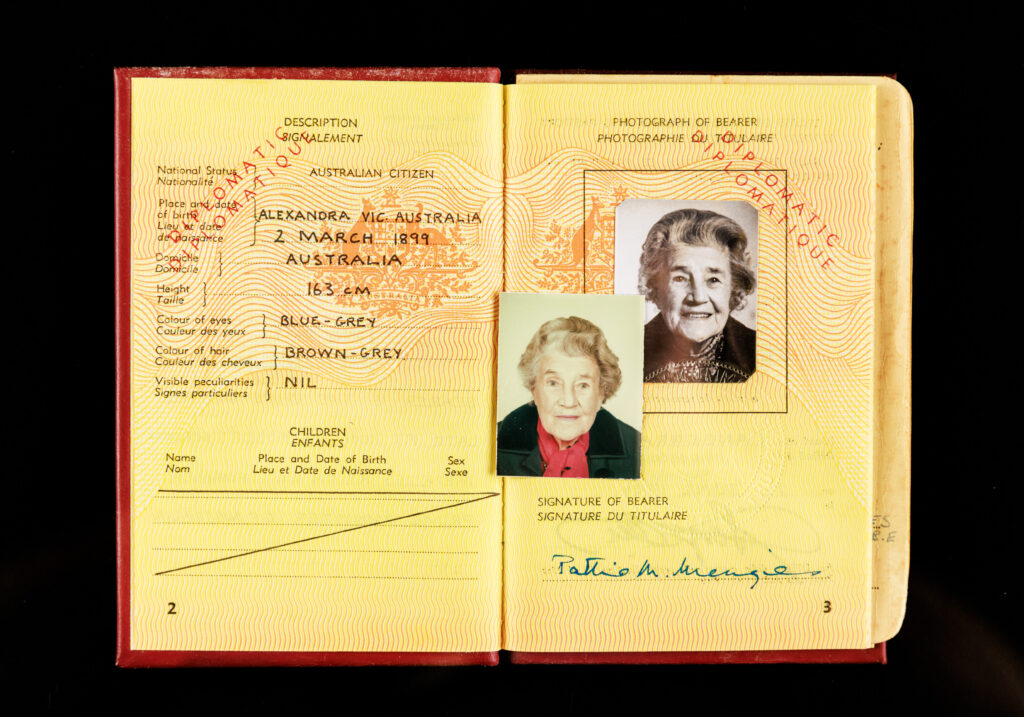 DESCRIPTION
SIGNALEMENT
DIPLOMATIC
DIPLOMATIQUE
National Status
Nationalité
AUSTRALIAN CITIZEN
Place and date
of birth
Lieu et date
de naissance
ALEXANDRA VIC. AUSTRALIA
2 MARCH 1899
Domicile
Domicile
AUSTRALIA
Height
Taille
163 cm
Colour of eyes
Couleur des yeux
BLUE-GREY
Colour of hair
Couleur des cheveux
BROWN-GREY
Visible peculiarities
Signes particuliers
NIL
CHILDREN
ENFANTS
Name
Nom
Place and Date of Birth
Lieu et Date de Naissance
Sex
Sexe
2
PHOTOGRAPH OF BEARER
PHOTOGRAPHIE DU TITULAIRE
DIPLOMATIC
DIPLOMATIQUE
SIGNATURE OF BEARER
SIGNATURE DU TITULAIRE
Pattie M. Menzies
3